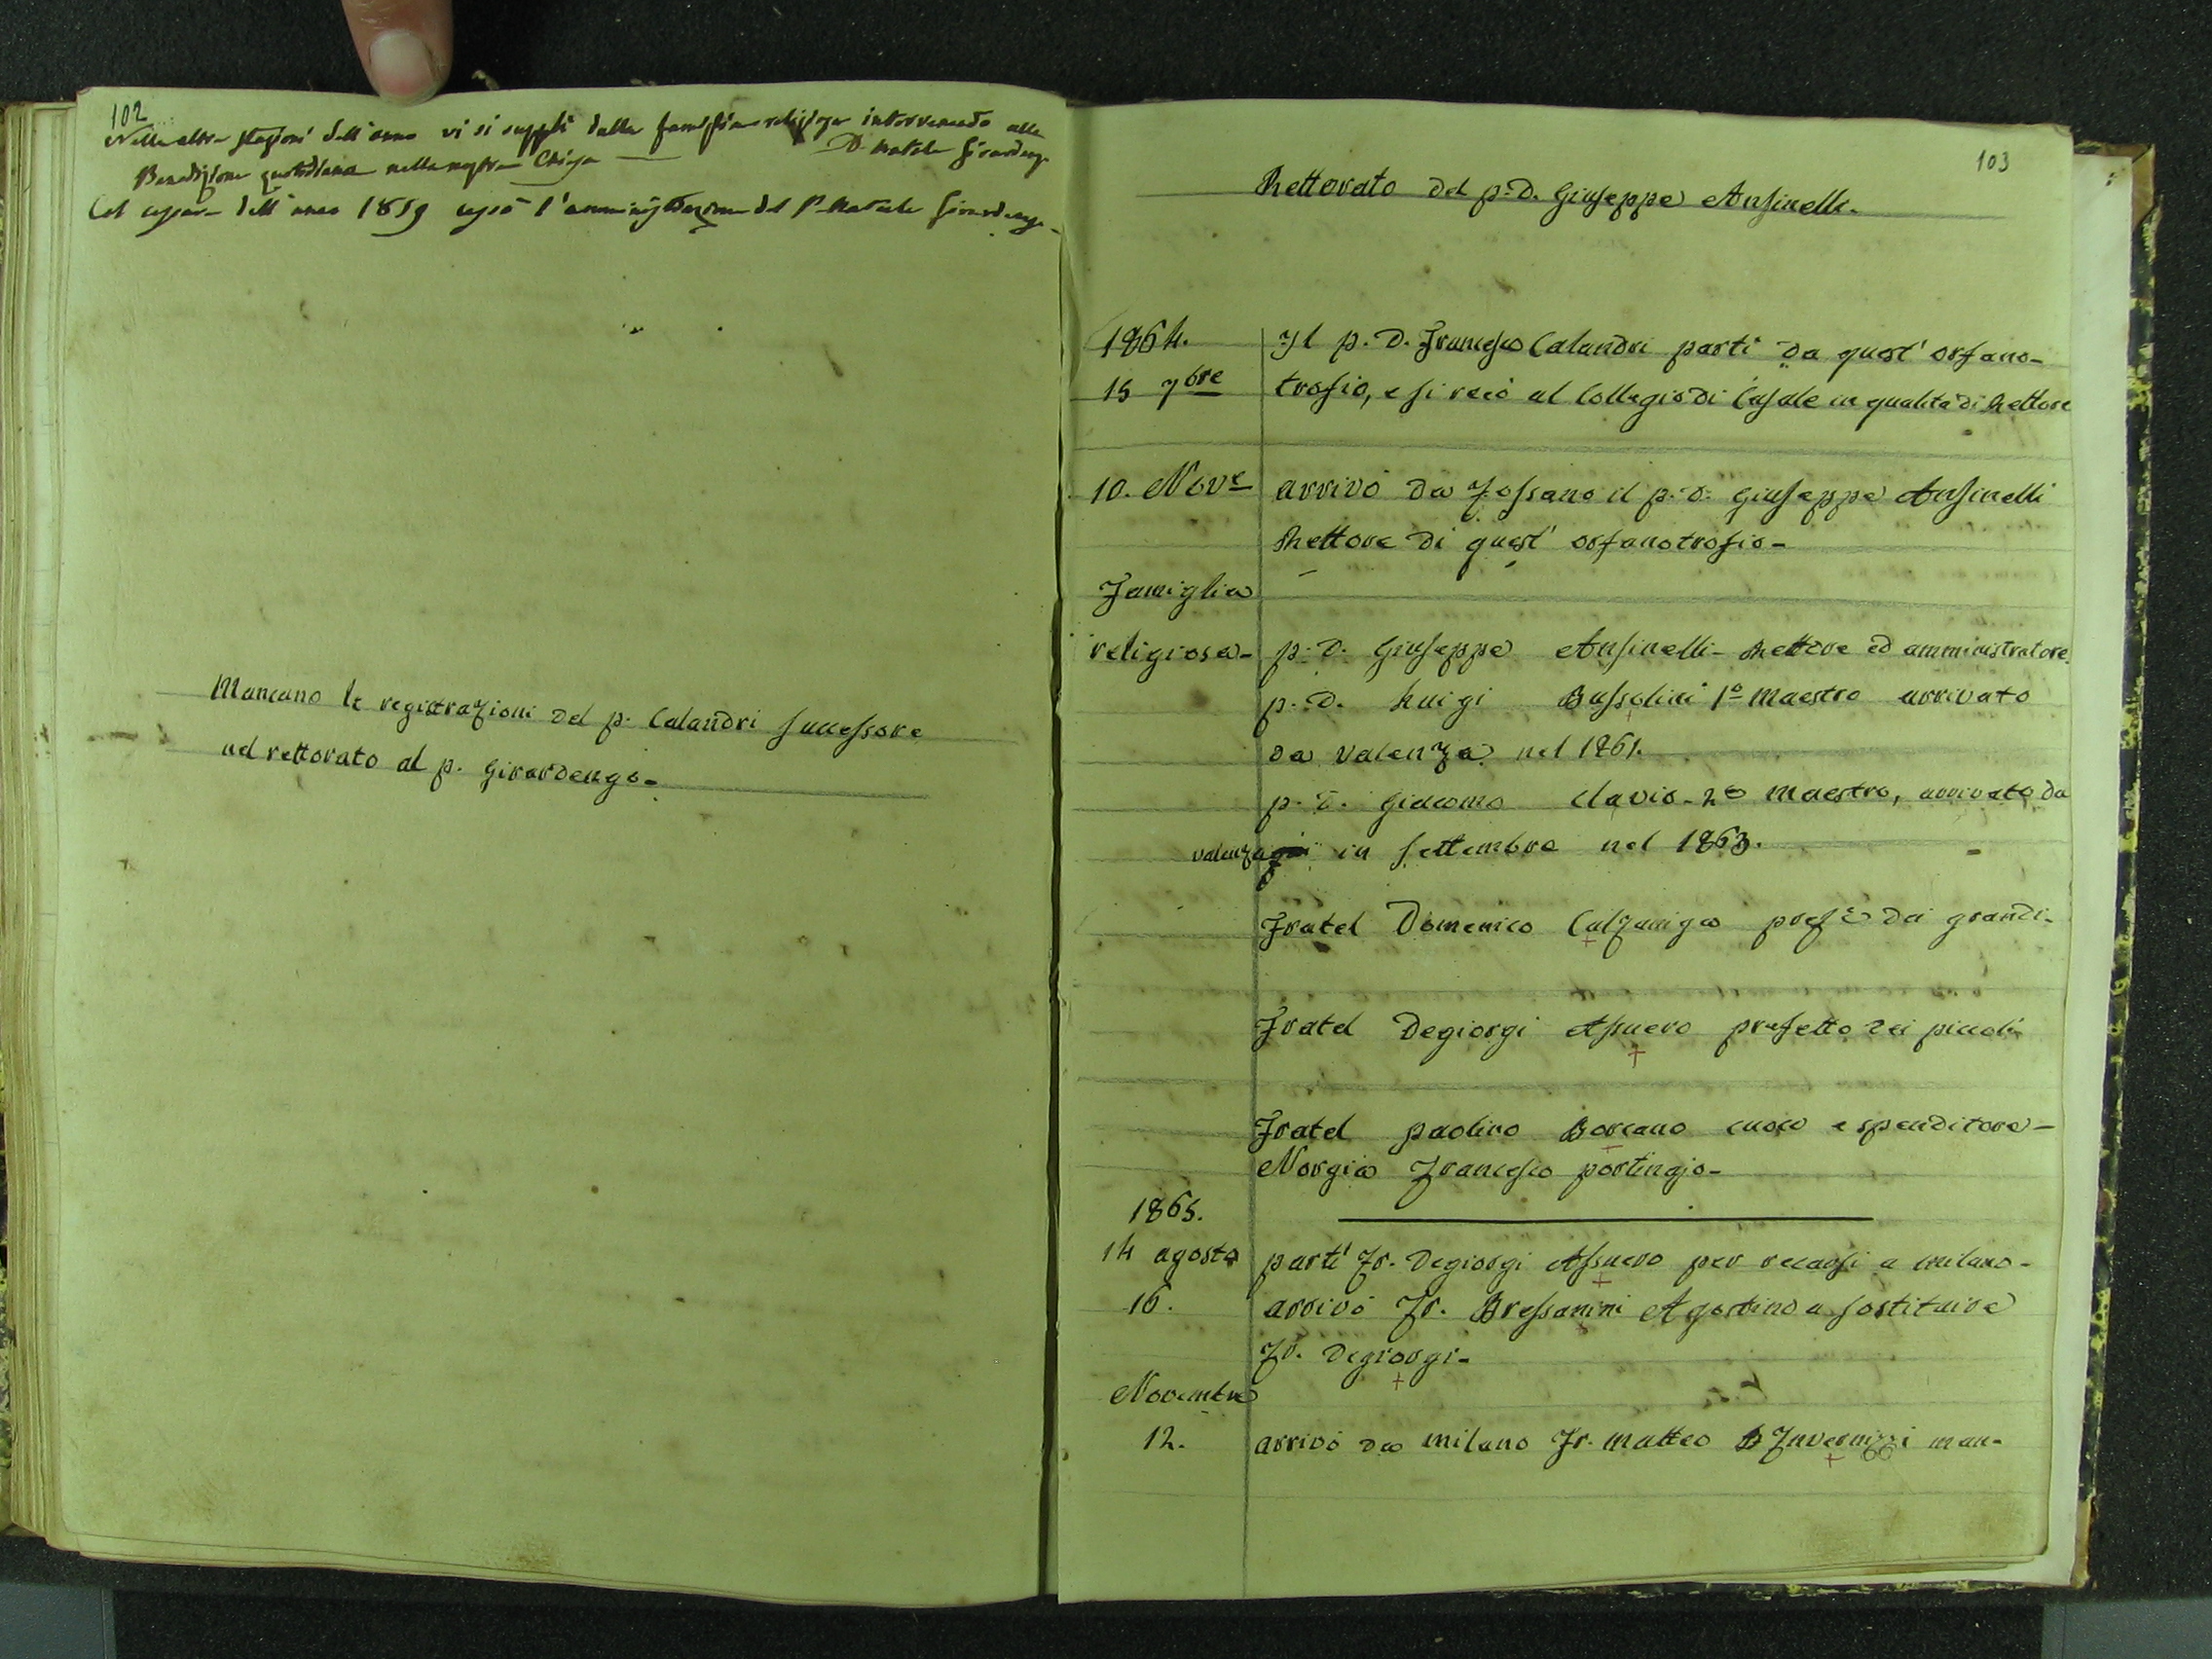 102
Nelle altre stagioni dell'anno vi si supplì dalla famiglia religiosa intervenendo alla
Benedizione quotidiana nella nostra Chiesa — D. Natale Girardengo
Col cessare dell'anno 1859 cessò l'amministrazione del P. Natale Girardengo.
Mancano le registrazioni del p. Calandri successore
nel rettorato al p. Girardengo-
103
Rettorato del p. D. Giuseppe Ansinelli.
1864. Il p. D. Francesco Calandri partì da quest' orfano-
15 7bre trofio, e si recò al Collegio di Casale in qualità di Rettore
10. Nove arrivò da Fossano il p. D. Giuseppe Ansinelli
Rettore di quest' orfanotrofio-
Famiglia
religiosa- p. D. Giuseppe Ansinelli- Rettore ed amministratore.
p. D. Luigi Bussolini 1o Maestro arrivato
da Valenza nel 1861.
p. D. Giacomo Clavio- 2o Maestro, arrivato da
valenza in settembre nel 1863.
Fratel Domenico Calzaniga prefe dei grandi-
Fratel Degiorgi Assuero prefetto dei piccoli
Fratel paolino Borcano cuoco e spenditore-
Norgia Francesco portinajo-
1865.
14 agosto partì Fr. Degiorgi Assuero per recarsi a milano-
16. arrivò Fr. Bressanini Agostino a sostituire
Fr. Degiorgi-
Novembre
12. arrivò da milano Fr. Matteo Invernizzi man-